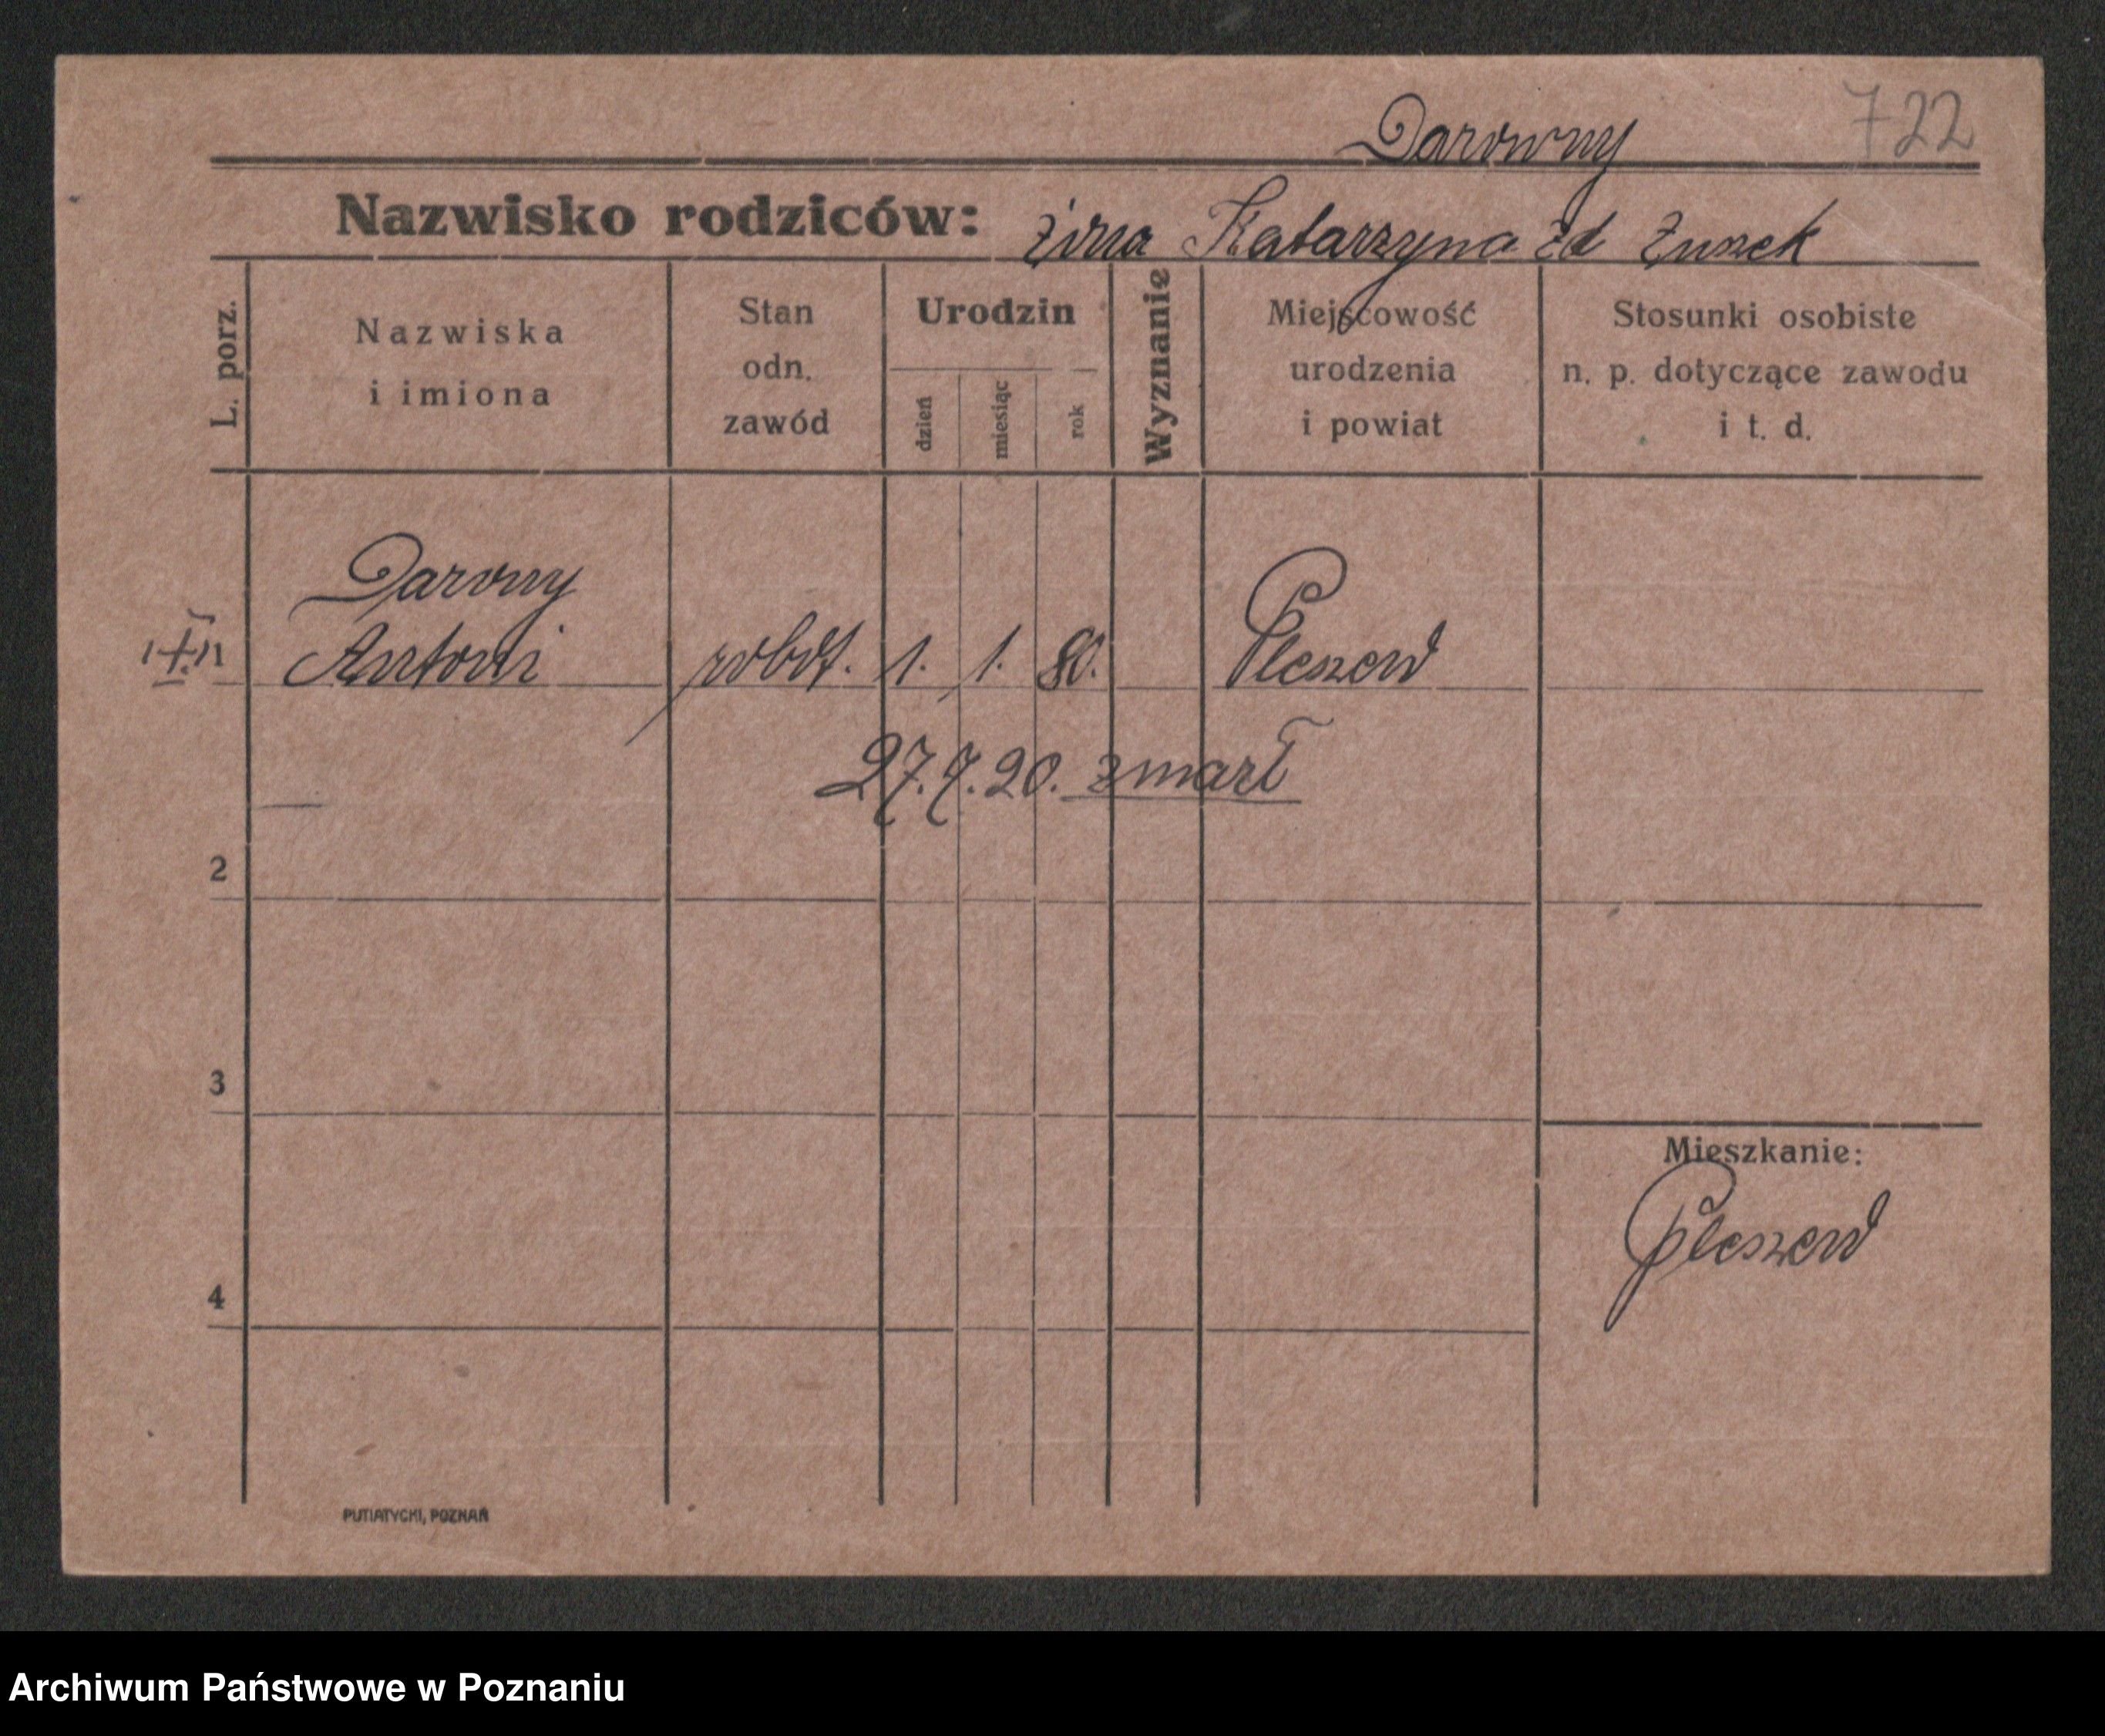 722
Darowny
Nazwisko rodziców: żona Katarzyna zd Zuszek
L. porz.
Nazwiska
i imiona
Stan
odn.
zawód
Urodzin
dzień
miesiąc
rok
Wyznanie
Miejscowość
urodzenia
i powiat
Stosunki osobiste
n. p. dotyczące zawodu
i t. d.
Darowny
Antoni robot. 1. 1. 80. Pleszew
27.7.20. zmarł
2
3
Mieszkanie:
Pleszew
4
PUTIATYCKI, POZNAŃ
Archiwum Państwowe w Poznaniu